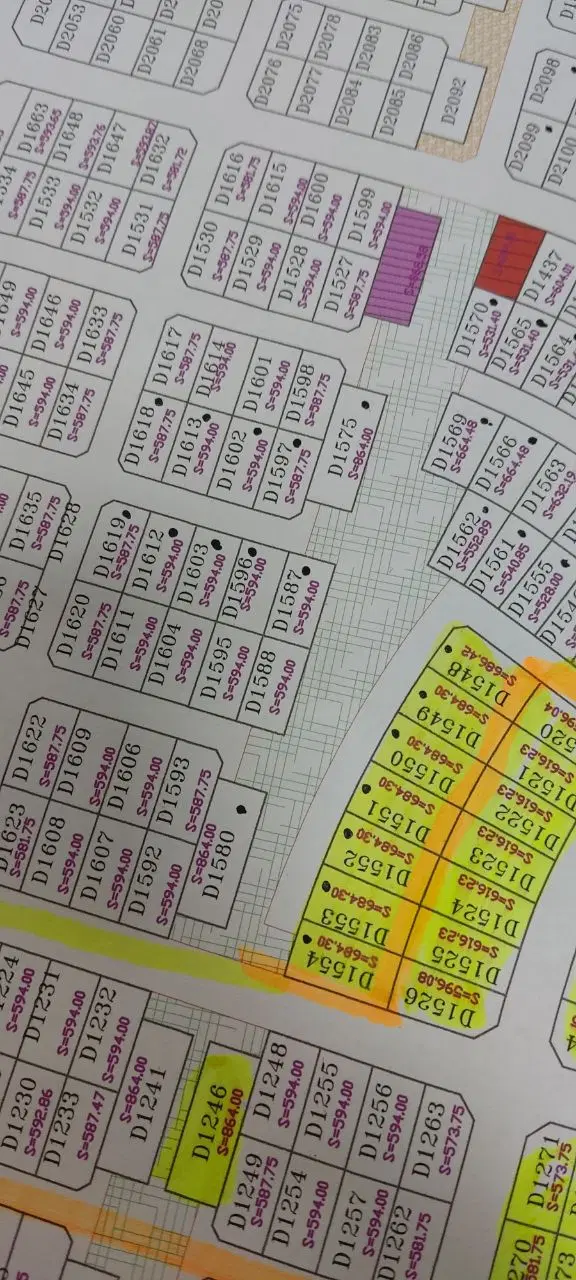 D2053
D2060
D2061
D2068
D2075
D2076
D2078
D2077
D2083
D2084
D2086
D2085
D2092
D2098
D2099
D2100
D1663
S=593.65
D1648
S=593.76
D1647
D1632
S=581.72
S=587.75
D1533
S=594.00
D1532
S=594.00
D1531
S=587.75
D1616
S=581.75
D1615
S=594.00
D1600
S=594.00
D1599
S=594.00
D1530
S=587.75
D1529
S=594.00
D1528
S=594.00
D1527
S=587.75
D1437
S=604.01
D1570
S=531.40
D1565
S=531.40
D1564
S=594.00
D1646
S=594.00
D1633
S=587.75
D1645
S=594.00
D1634
S=587.75
D1617
S=587.75
D1614
S=594.00
D1601
S=594.00
D1598
S=587.75
D1618
S=587.75
D1613
S=594.00
D1602
S=594.00
D1597
S=587.75
D1575
S=864.00
D1569
S=664.48
D1566
S=664.48
D1563
S=632.19
D1562
S=552.89
D1561
S=540.95
D1555
S=528.00
D1635
S=587.75
D1628
S=587.75
D1627
D1619
S=587.75
D1612
S=594.00
D1603
S=594.00
D1596
S=594.00
D1587
S=594.00
D1620
S=587.75
D1611
S=594.00
D1604
S=594.00
D1595
S=594.00
D1588
S=594.00
D1622
S=587.75
D1609
S=594.00
D1606
S=594.00
D1593
S=587.75
D1623
S=581.75
D1608
S=594.00
D1607
S=594.00
D1592
S=594.00
D1580
S=864.00
D1548
S=686.42
D1549
S=684.30
D1550
S=684.30
D1551
S=684.30
D1552
S=684.30
D1553
S=684.30
D1554
S=684.30
D1521
S=616.23
D1522
S=616.23
D1523
S=616.23
D1524
S=616.23
D1525
S=616.23
D1526
S=596.08
S=594.00
D1231
S=594.00
D1232
S=594.00
D1230
S=592.86
D1233
S=587.47
D1241
S=864.00
D1246
S=864.00
D1248
S=594.00
D1255
S=594.00
D1256
S=594.00
D1263
S=573.75
D1249
S=587.75
D1254
S=594.00
D1257
S=594.00
D1262
S=581.75
D1271
S=573.75